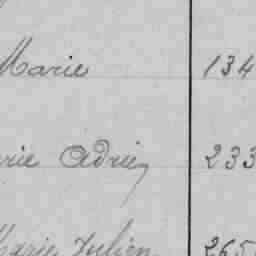 Marie 134
rie Adrien 233
Marie Julien 265